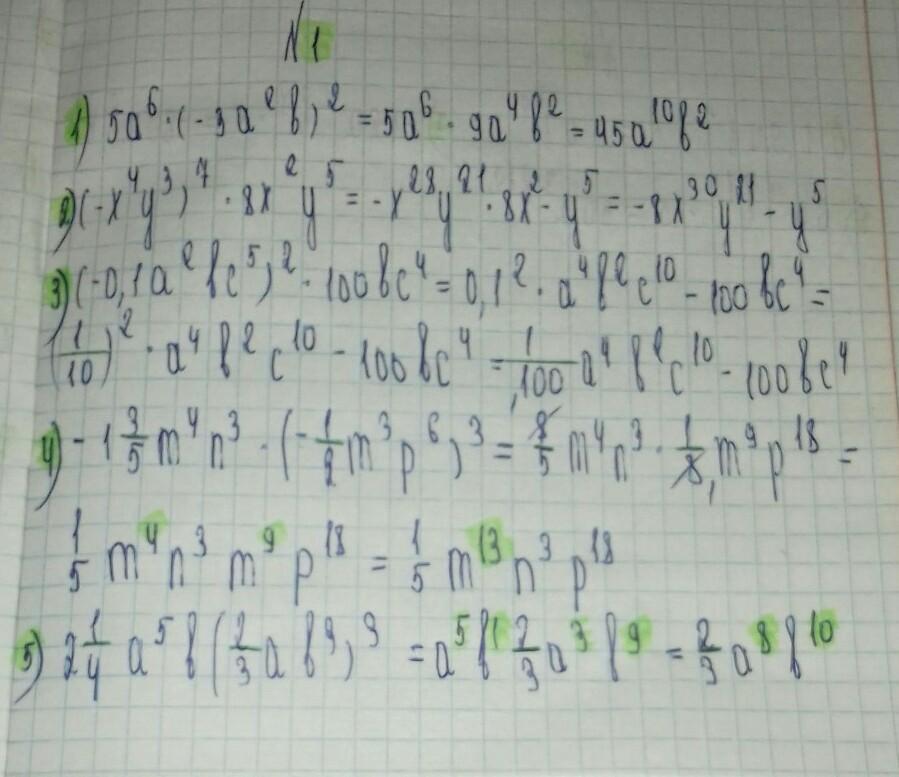 N 1
1) 5a⁶ · (-3a²b)² = 5a⁶ · 9a⁴b² = 45a¹⁰b²
2) (-x⁴y³)⁷ · 8x²y⁵ = -x²⁸y²¹ · 8x² - y⁵ = -8x³⁰y²¹ - y⁵
3) (-0,1a²bc⁵)² · 100bc⁴ = 0,1² · a⁴b²c¹⁰ - 100bc⁴ =
(1/10)² · a⁴b²c¹⁰ - 100bc⁴ = 1/100 a⁴b²c¹⁰ - 100bc⁴
4) -1 3/5 m⁴n³ · (-1/2 m³p⁶)³ = 8/5 m⁴n³ · 1/8, m⁹p¹⁸ =
1/5 m⁴n³m⁹p¹⁸ = 1/5 m¹³n³p¹⁸
5) 2 1/4 a⁵b (2/3 ab³)³ = a⁵b¹ 2/3 a³b⁹ = 2/3 a⁸b¹⁰